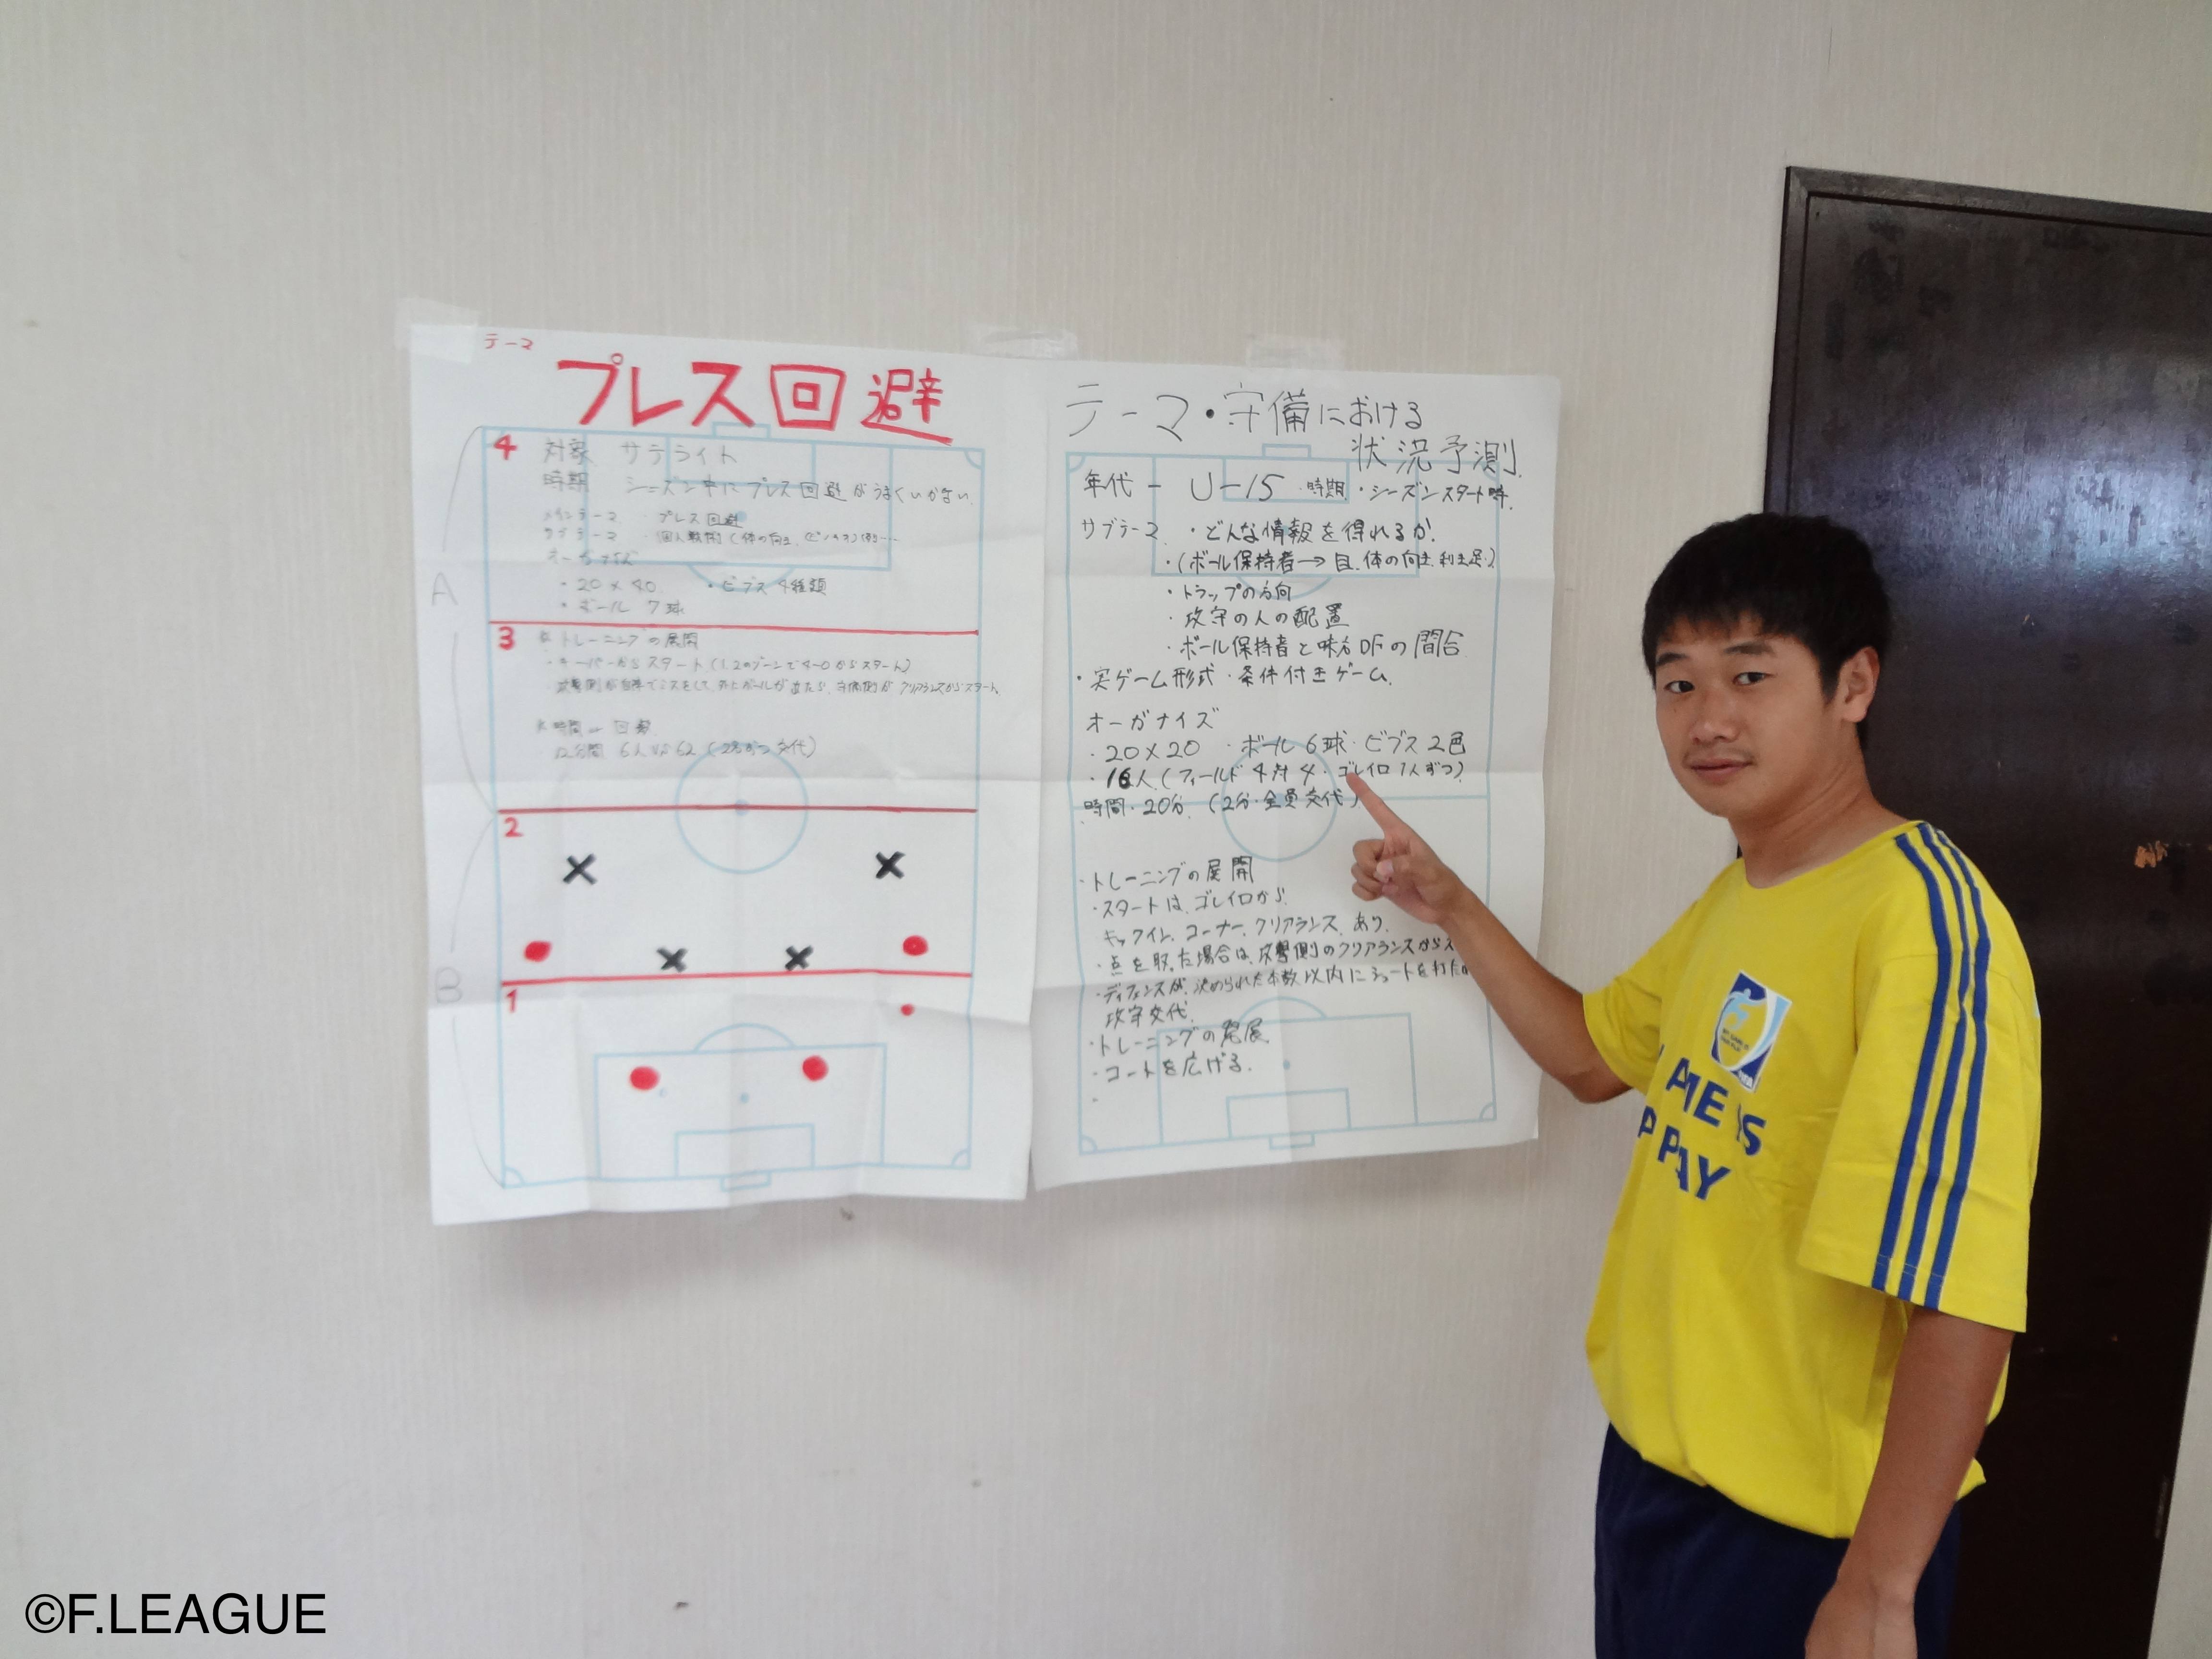 テーマ
プレス回避
4 対象 サテライト
時期 シーズン中にプレス回避がうまくいかない
メインテーマ ・プレス回避
サブテーマ ・個人戦術(体の向き、
・20×40 ・ビブス4種類
・ボール 7球
A
3 トレーニングの展開
・キーパーからスタート(1,2のゾーンで4-0からスタート)
時間
12分間 6人
2
B
1
テーマ・守備における
状況予測
年代 - U-15 時期・シーズンスタート時
サブテーマ ・どんな情報を得れるか。
・(ボール保持者→目、体の向き、利き足)
・トラップの方向
・攻守の人の配置
・ボール保持者と味方DFの間合
・実ゲーム形式・条件付きゲーム
オーガナイズ
・20×20 ・ボール6球・ビブス2色
・16人(フィールド4対4・ゴレイロ1人ずつ)
時間・20分 (2分・全員交代)
・トレーニングの展開
・スタートは、ゴレイロから
キックイン、コーナー、クリアランス、あり
・点を取った場合は、攻撃側のクリアランスから
・ディフェンスが、決められた本数以内にシュートを打た
攻守交代
・トレーニングの発展
・コートを広げる。
MY GAME IS
FAIR PLAY
©F.LEAGUE